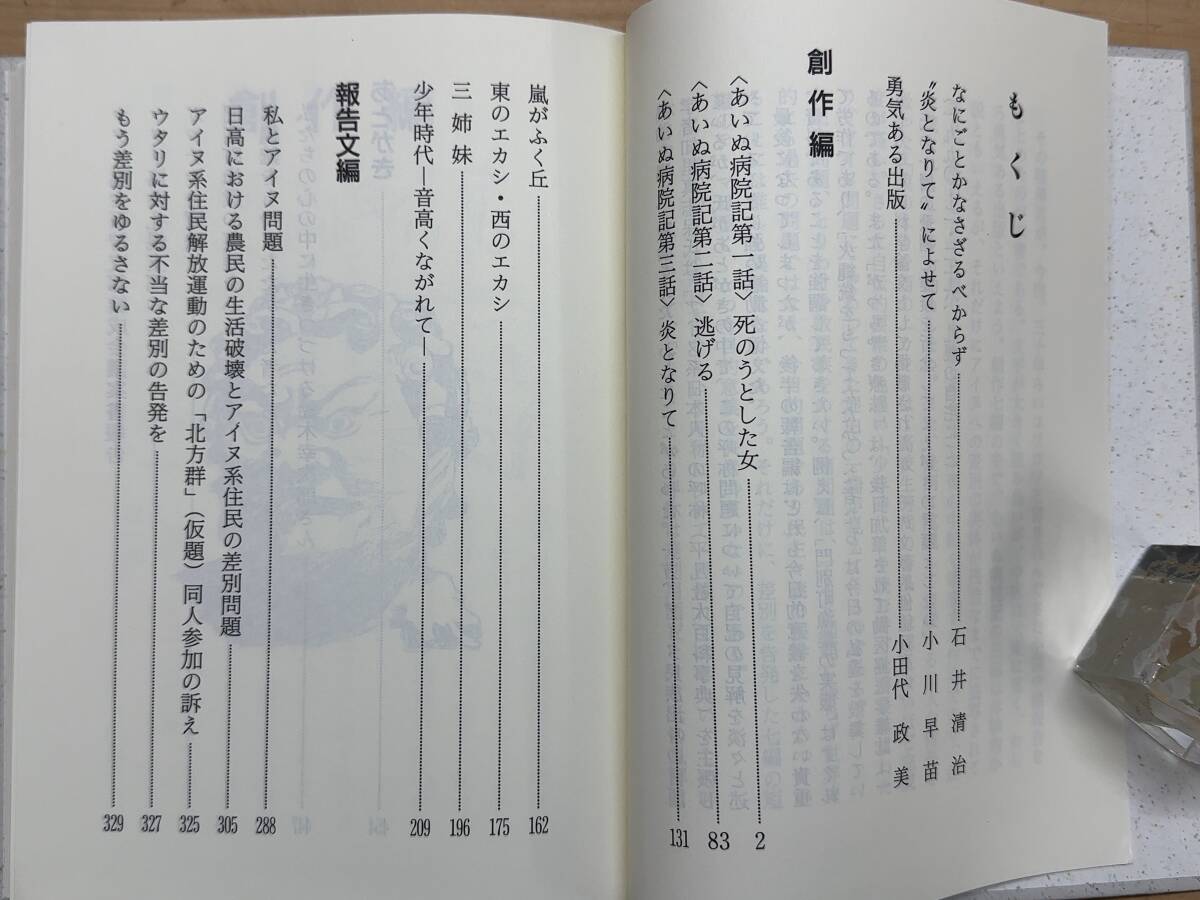 もくじ
なにごとかなさざるべからず……石井清治
〝炎となりて〟によせて……小川早苗
勇気ある出版……小田代政美
創作編
〈あいぬ病院記第一話〉死のうとした女……2
〈あいぬ病院記第二話〉逃げる……83
〈あいぬ病院記第三話〉炎となりて……131
嵐がふく丘……162
東のエカシ・西のエカシ……175
三姉妹……196
少年時代―音高くながれて―……209
報告文編
私とアイヌ問題……288
日高における農民の生活破壊とアイヌ系住民の差別問題……305
アイヌ系住民解放運動のための「北方群」（仮題）同人参加の訴え……325
ウタリに対する不当な差別の告発を……327
もう差別をゆるさない……329